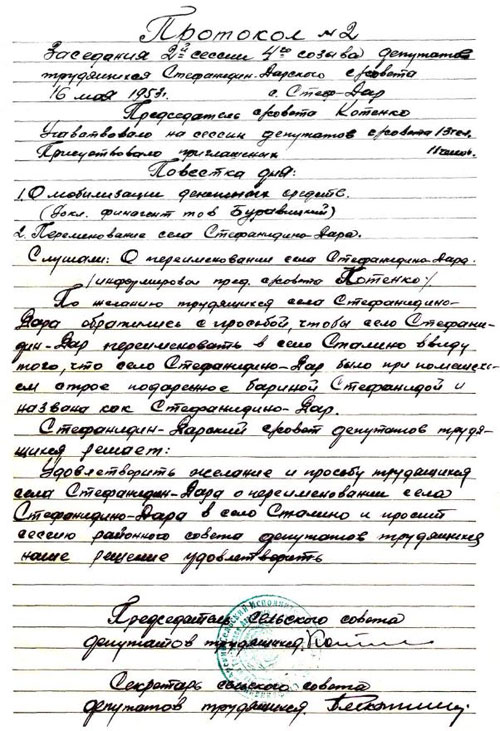 Протокол № 2
Заседания 2й сессии 4го созыва депутатов
трудящихся Стефанидин-Дарского с/совета
16 мая 1953г. с. Стеф-Дар
Председатель с/совета Котенко
Учавствовало на сессии депутатов с/совета 13 чел.
Присутствовало приглашенных 11 челов.
Повестка дня:
1. О мобилизации денежных средств.
(докл. финагент тов Буравицкий)
2. Переменование села Стефанидино-Дара.
Слушали: О переименовании села Стефанидино-Дара.
/информировал пред. с/совета Котенко/
По желанию трудящихся села Стефанидино-
Дара обратились с просьбой, чтобы село Стефани-
дин-Дар переименовать в село Сталино ввиду
того, что село Стефанидино-Дар было при помещес-
ем строе подаренное бариной Стефанидой и
названа как Стефанидино-Дар.
Стефанидин-Дарский с/совет депутатов трудя-
щихся решает:
Удовлетворить желание и просьбу трудящихся
села Стефанидин-Дара о переименовании села
Стефанидино-Дара в село Сталино и просит
сессию районного совета депутатов трудящихся
наше решение удовлетворить
Председатель сельского совета
депутатов трудящихся
Секретарь сельского совета
депутатов трудящихся